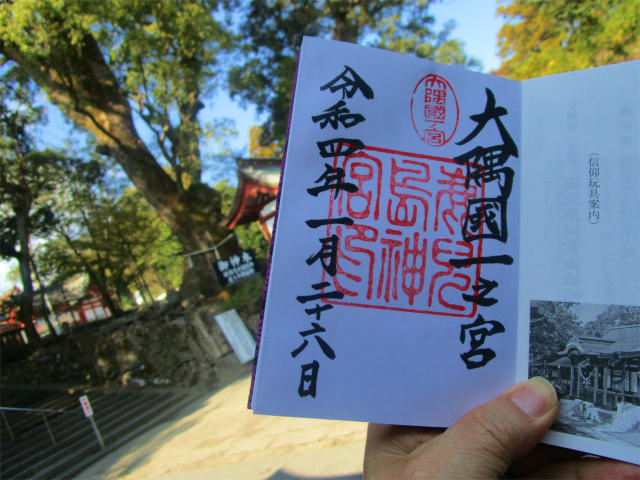 大隅國一之宮
大隅國一ノ宮
鹿児島神宮印
令和四年一月二十六日
(信仰玩具案内)
御神木